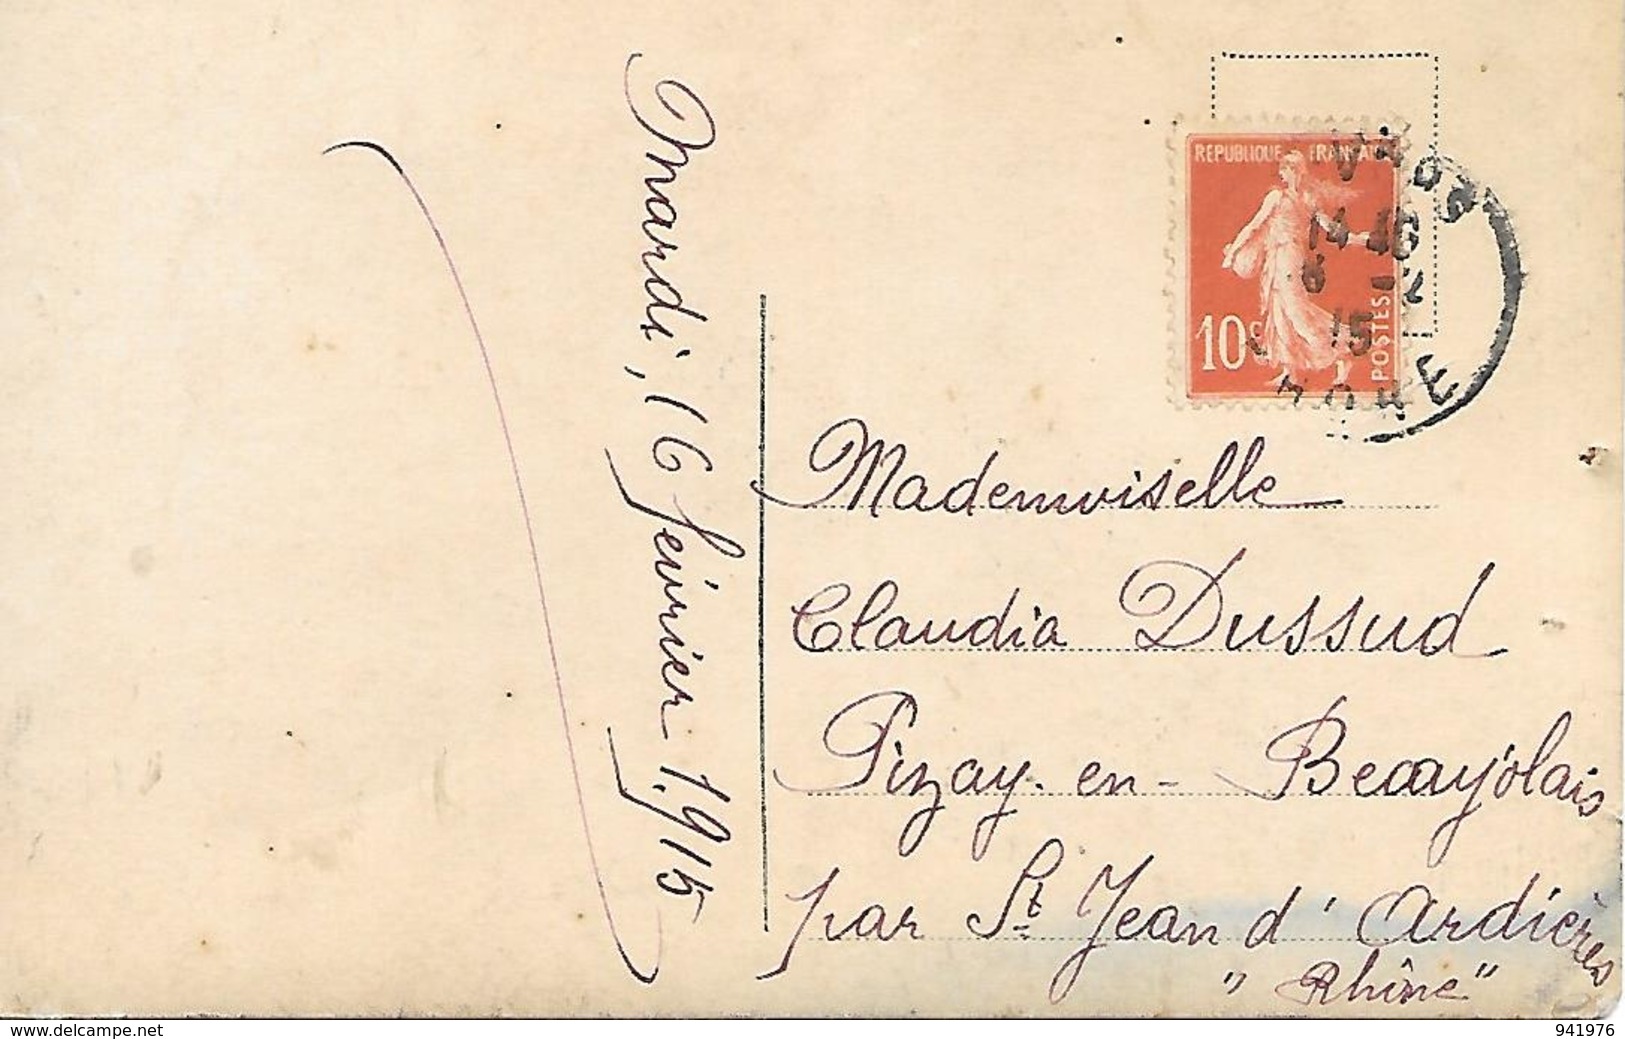 REPUBLIQUE FRANÇAISE
10c
POSTES
14 40
-2
15
Mardi, 16 février 1.915
Mademoiselle
Claudia Dussud
Pizay-en-Beaujolais
par St Jean d'Ardières
"Rhône"
www.delcampe.net
941976